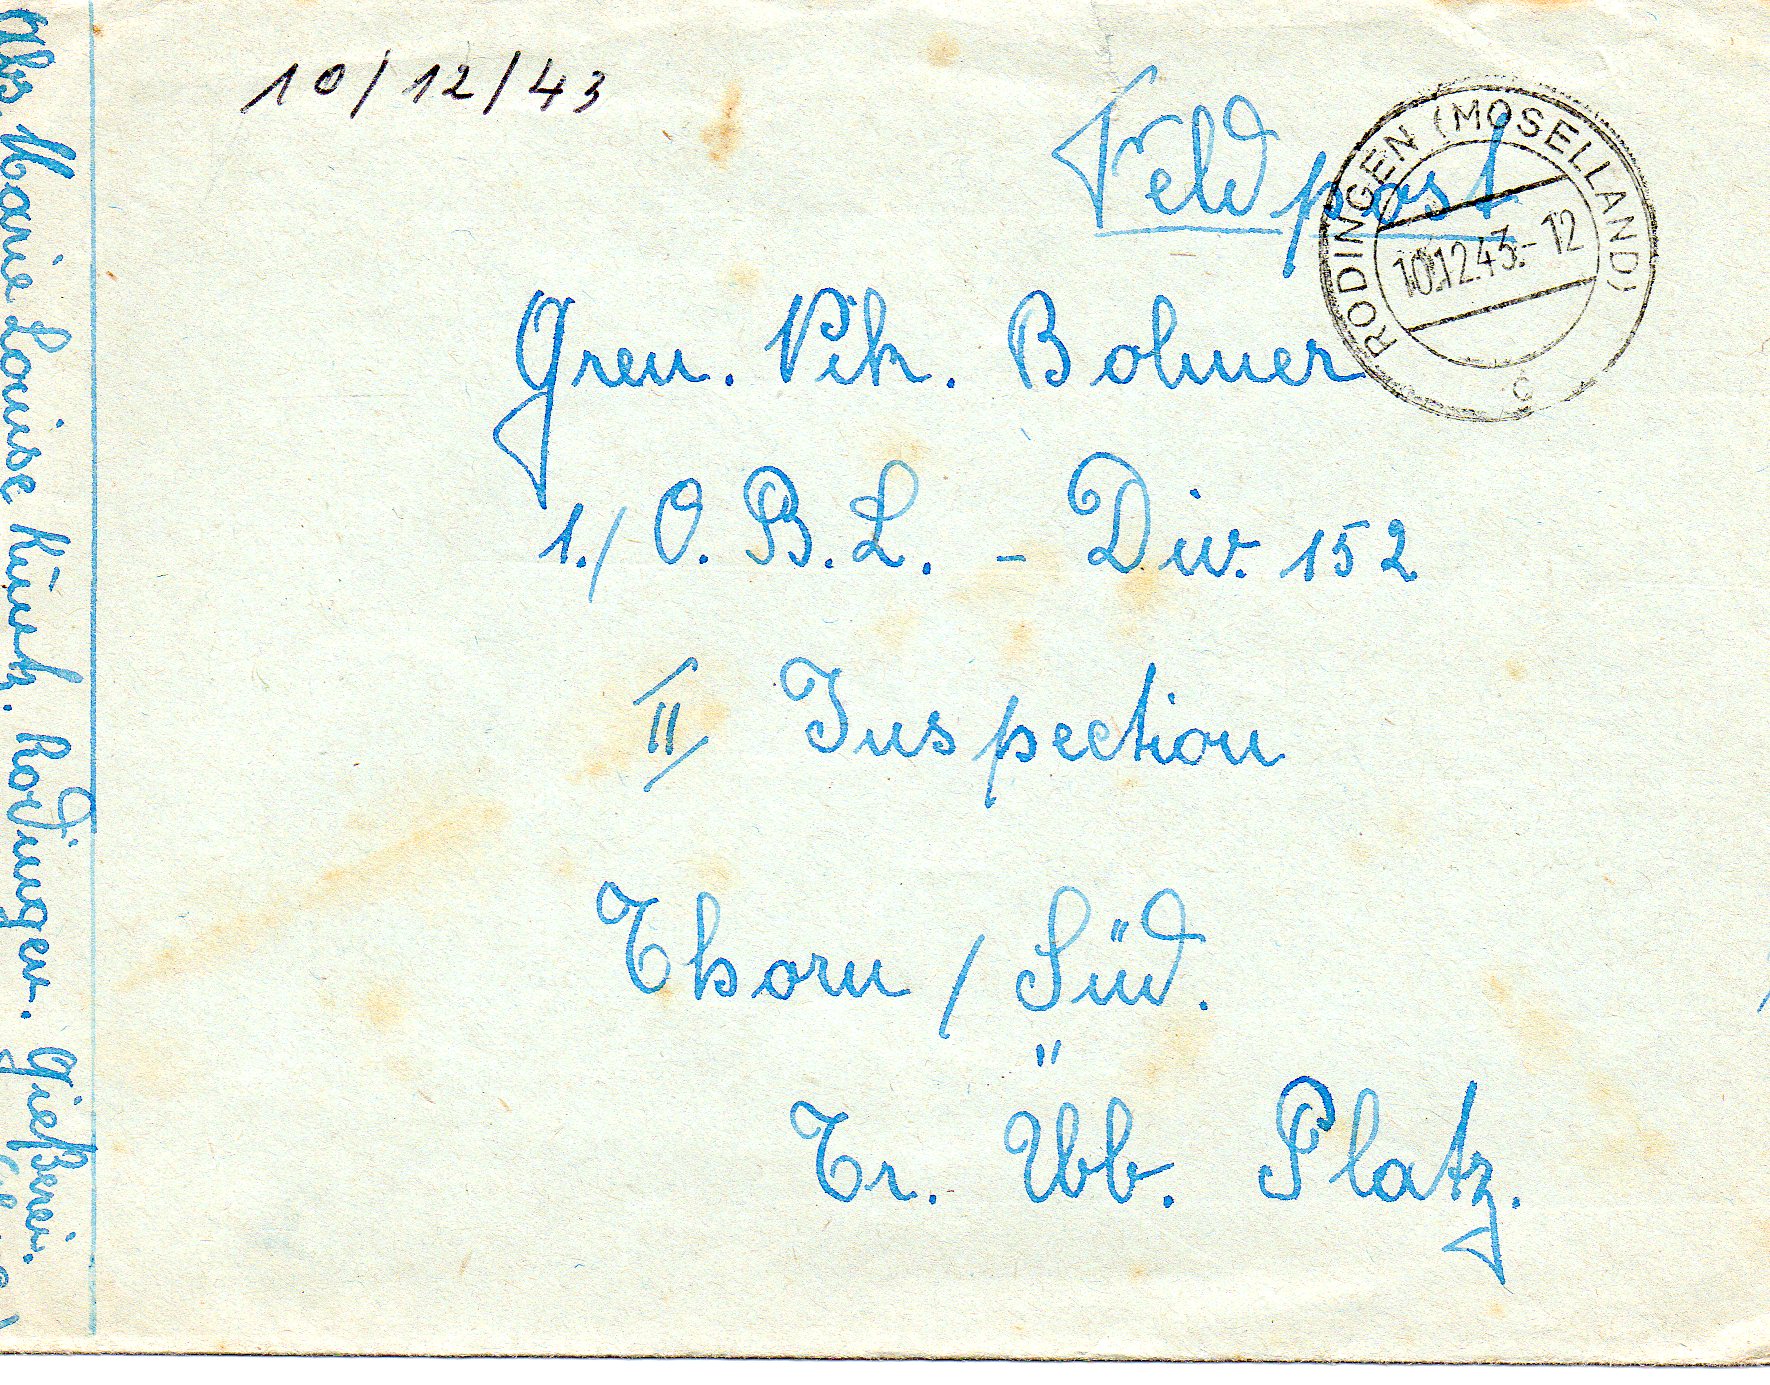 10/12/43
Feldpost
RODINGEN (MOSELLAND)
10.12.43.-12
c
Gren. Vik. Bohner
1./O.B.L. - Div. 152
II Inspection
Thorn / Süd.
Tr. Übb. Platz.
Abs. Marie Louise Rodingen. Gießerei.